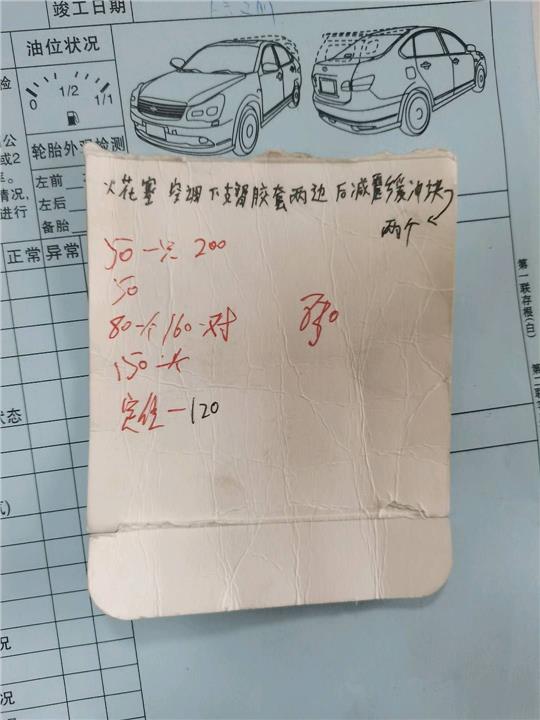 竣工日期
油位状况
0 1/2 1/1
轮胎外观检测
左前
左后
备胎
公
或2
情况,
进行
正常 异常
火花塞 空调 下支臂胶套两边 后减震缓冲块
两个
50一只 200
50
80一个 160一对
150一个
定位一120
状态
况
况
第一联存根(白)
第二联